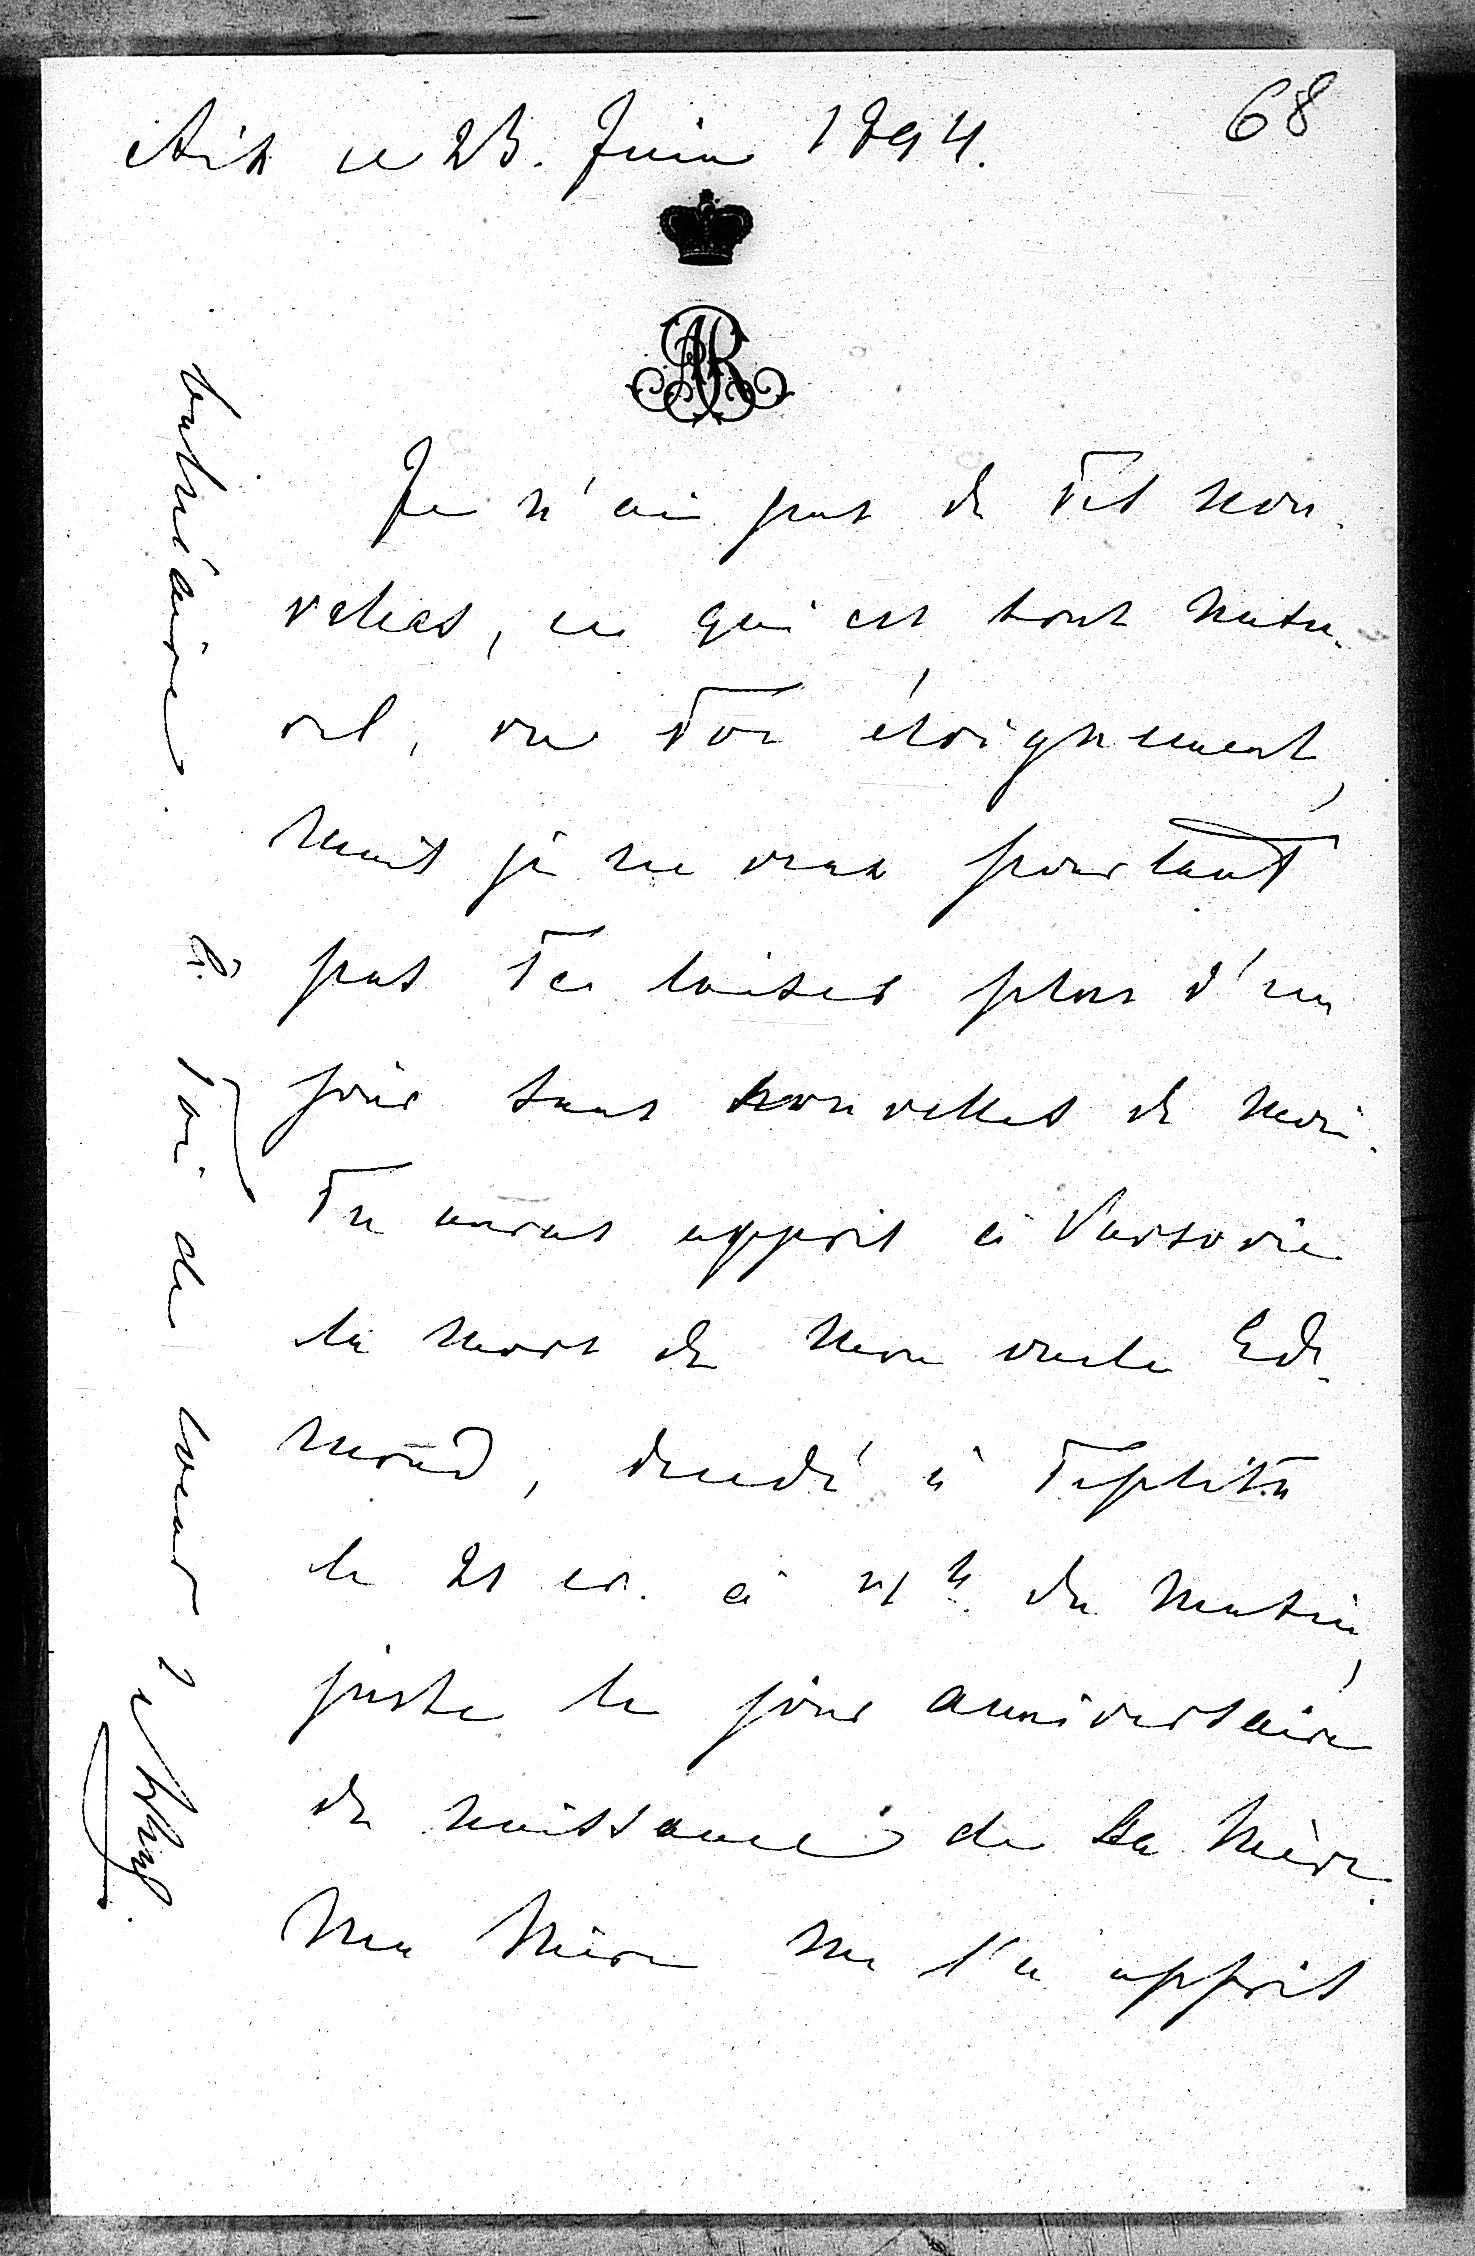 68
Aix ce 23. Juin 1894.
AR
Je n'ai pas de Tes nou-
velles, ce qui est tout natu-
rel, vu Ton éloignement,
mais je ne veux pourtant
pas Te laisser plus d'un
jour sans nouvelles de moi.
Tu auras appris à Varsovie
la mort de mon oncle Ed-
mond, décédé à Teplitz
le 21 cr. à h. du matin,
juste le jour anniversaire
de naissance de sa mère.
Ma Mère me l'a appris
à Toi de coeur